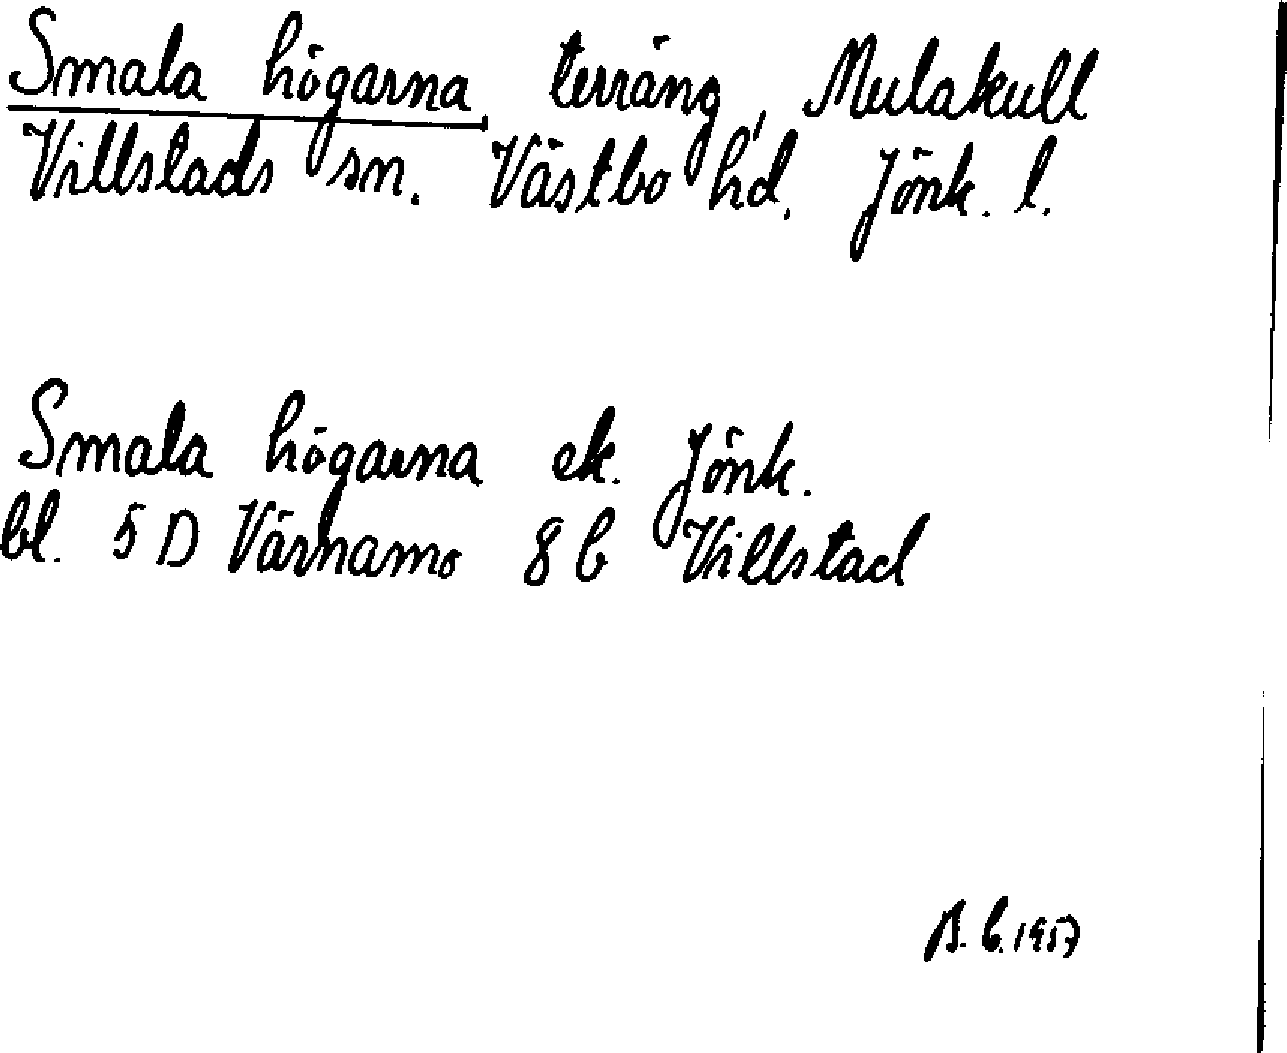 Smala högarna, terräng, Mulakull
Villstads sn. Västbo hd. Jönk. l.
Smala högarna ek. Jönk.
bl. 5 D Värnamo 8 b Villstad
1957